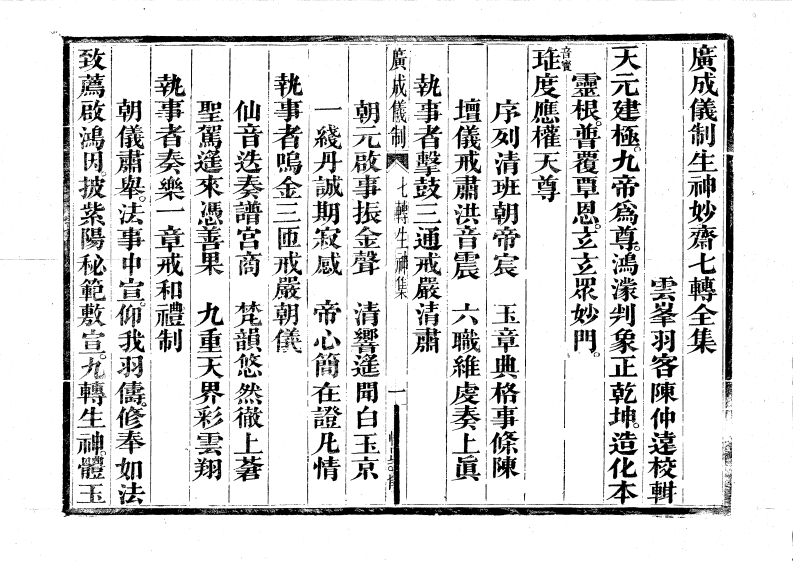 廣成儀制生神妙齋七轉全集
雲峯羽客陳仲遠校輯
天元建極。九帝爲尊。鴻濛判象正乾坤。造化本
靈根。普覆覃恩。玄玄眾妙門。
音實
琟度應權天尊
序列清班朝帝宸　玉章典格事條陳
壇儀戒肅洪音震　六職維虔奏上眞
執事者擊鼓三通戒嚴清肅
廣成儀制　七轉生神集　一
朝元啟事振金聲　清響遙聞白玉京
一綫丹誠期寂感　帝心簡在證凡情
執事者鳴金三匝戒嚴朝儀
仙音迭奏譜宮商　梵韻悠然徹上蒼
聖駕遙來憑善果　九重天界彩雲翔
執事者奏樂一章戒和禮制
朝儀肅舉。法事中宣。仰我羽儔。修奉如法
致薦啟鴻因。披紫陽秘範敷宣。九轉生神。體玉